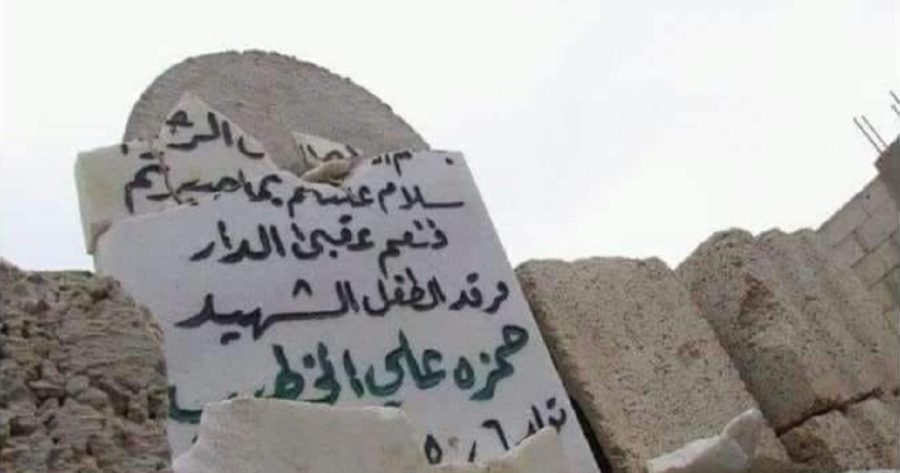 سلام عليكم بما صبرتم
فنعم عقبى الدار
مرقد الطفل الشهيد
حمزه علي الخطيب